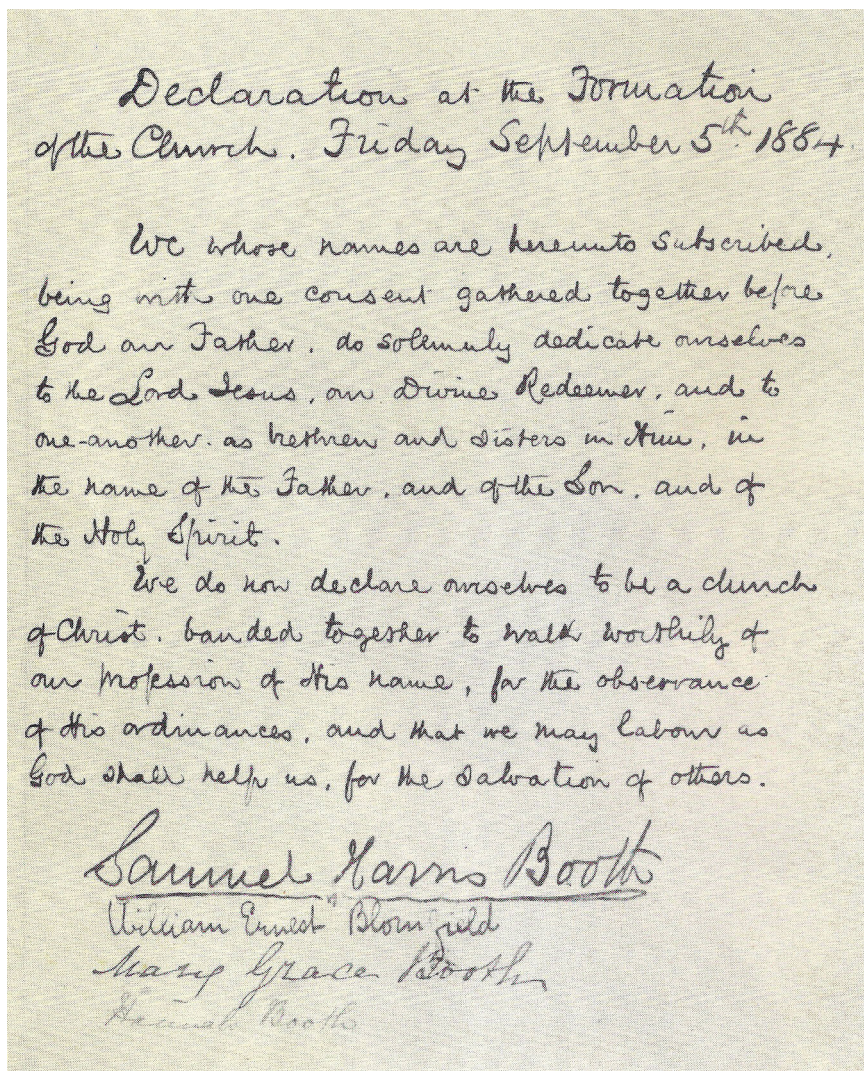 Declaration at the Formation
of the Church. Friday September 5th 1884.
We whose names are hereunto subscribed,
being with one consent gathered together before
God our Father, do solemnly dedicate ourselves
to the Lord Jesus, our Divine Redeemer, and to
one-another. as brethren and sisters in Him, in
the name of the Father, and of the Son, and of
the Holy Spirit.
We do now declare ourselves to be a church
of Christ, banded together to walk worthily of
our profession of His name, for the observance
of His ordinances, and that we may labour as
God shall help us, for the salvation of others.
Samuel Harris Booth
William Ernest Blomfield
Mary Grace Booth
Hannah Booth